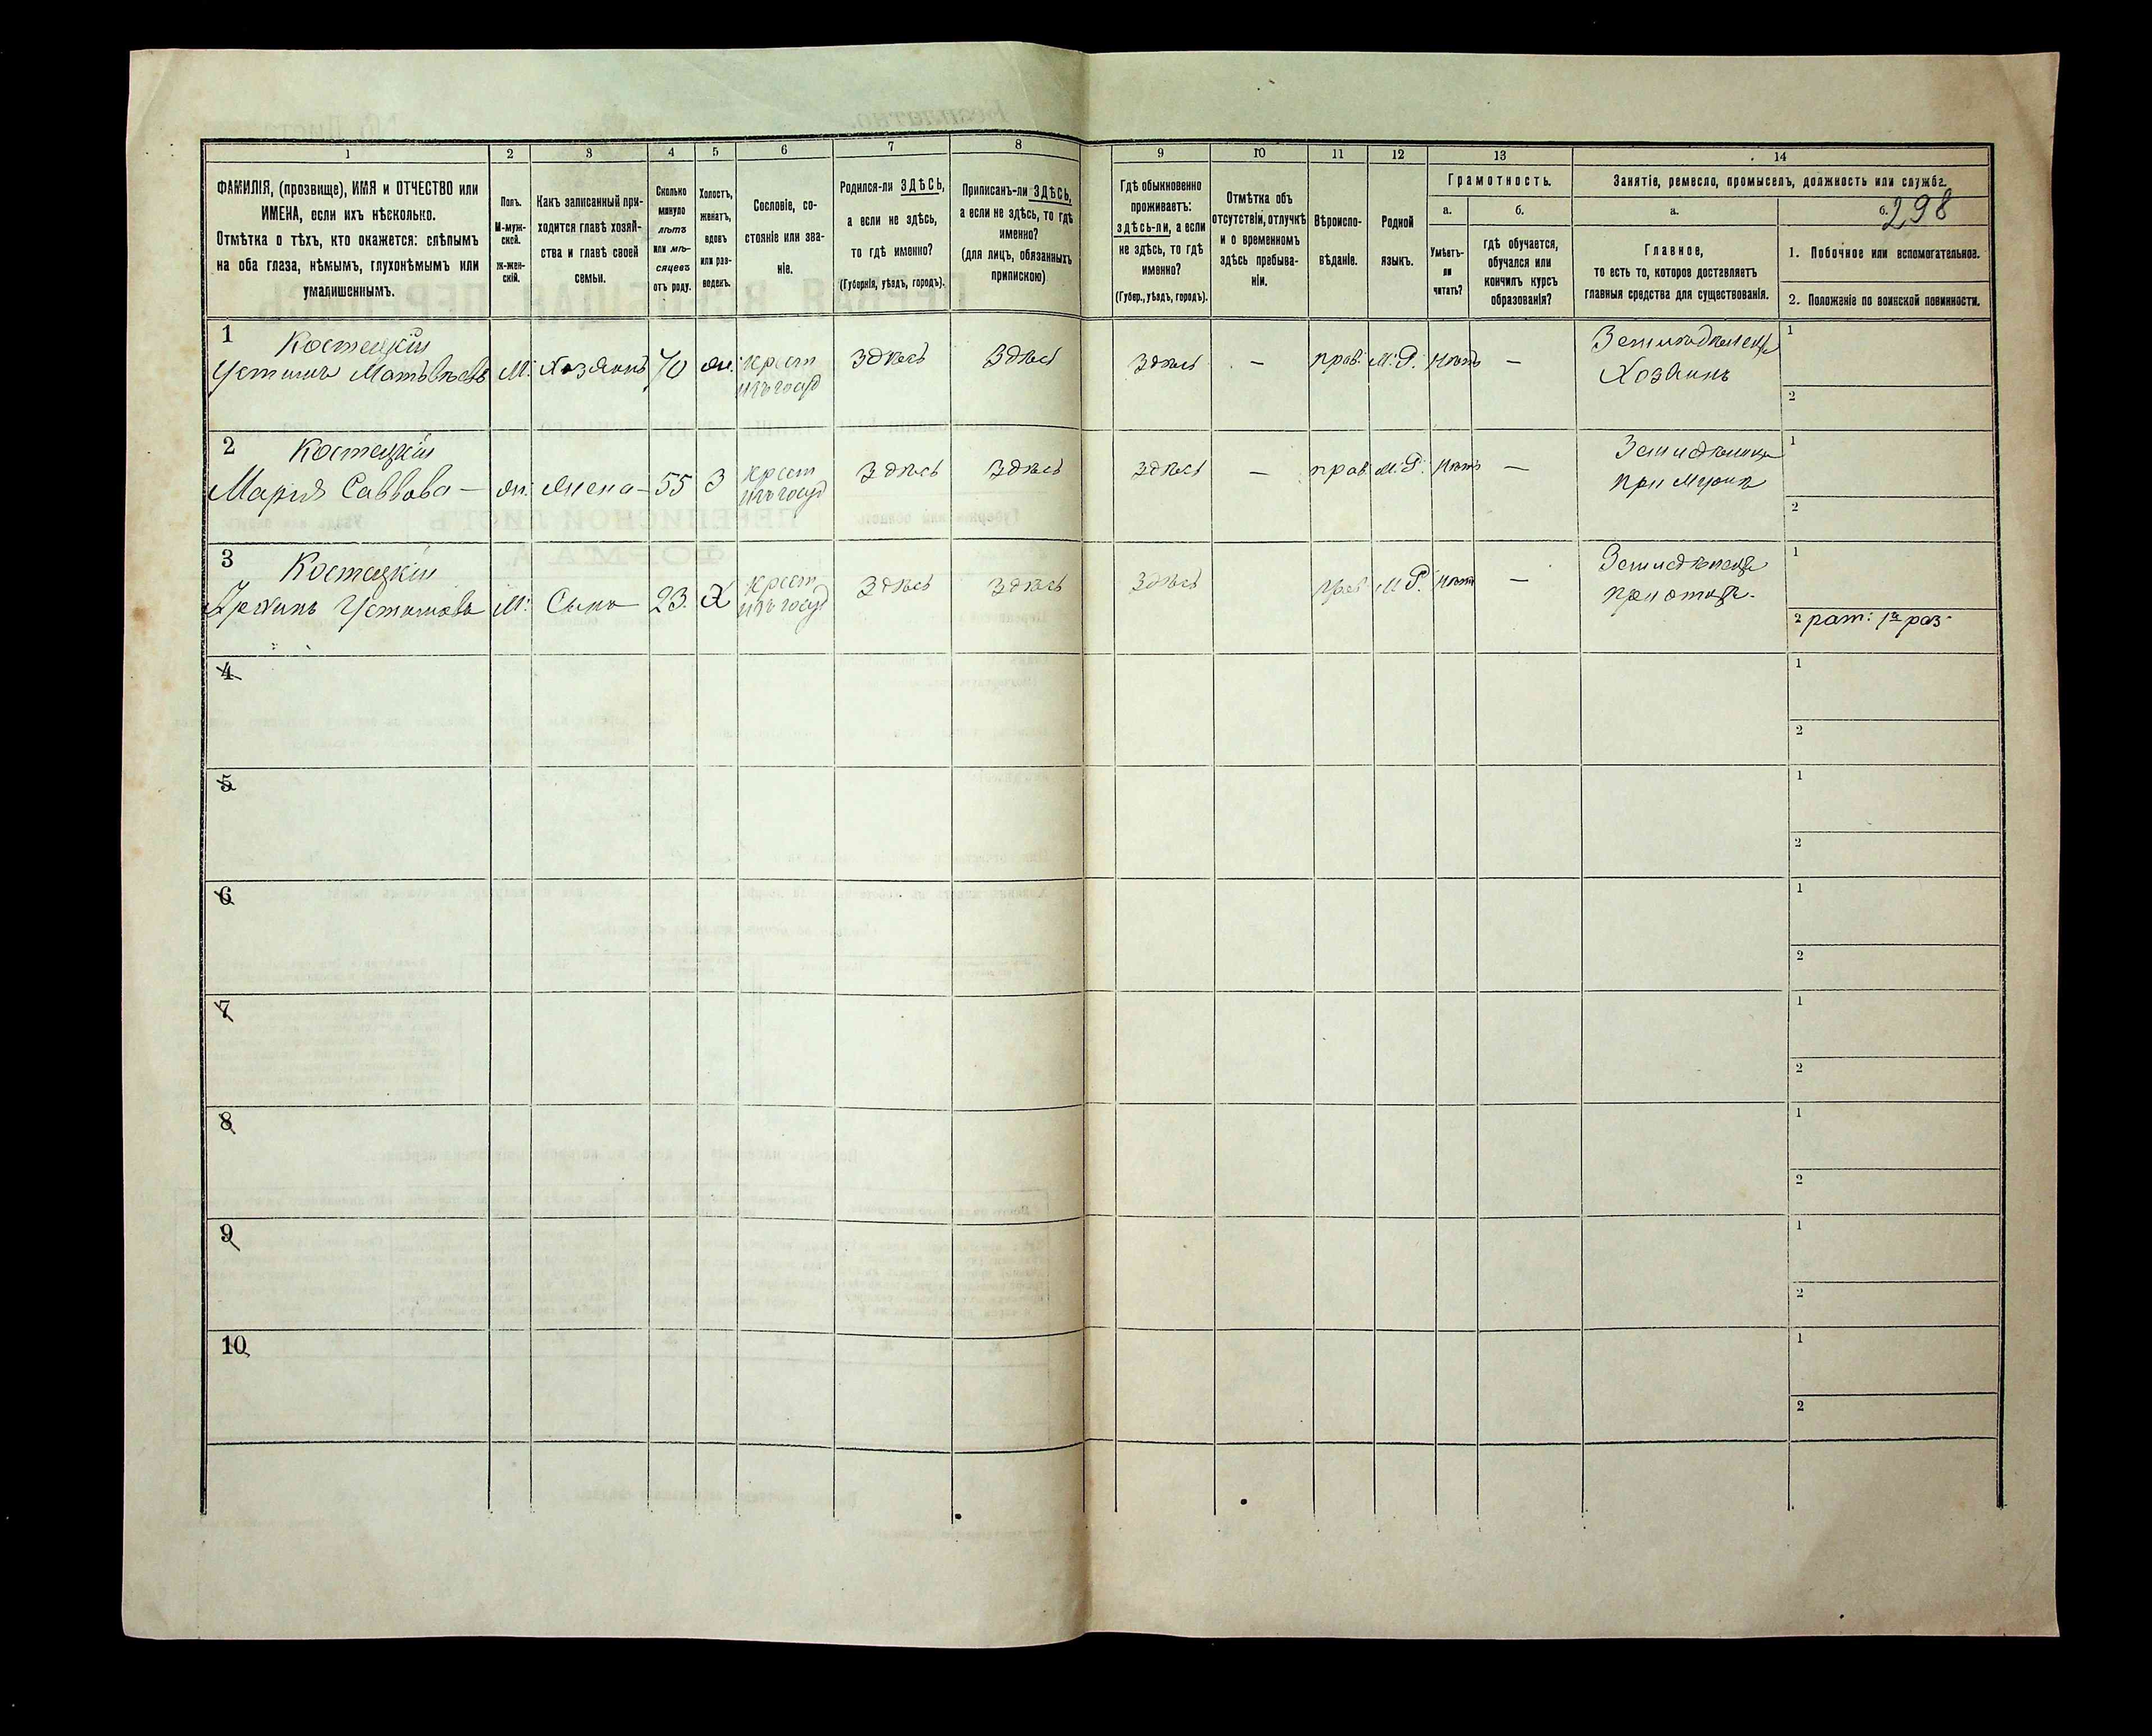 298
1 2 3 4 5 6 7 8 9 10 11 12 13 14
ФАМИЛІЯ, (прозвище), ИМЯ и ОТЧЕСТВО или
ИМЕНА, если ихъ нѣсколько.
Отмѣтка о тѣхъ, кто окажется: слѣпымъ
на оба глаза, нѣмымъ, глухонѣмымъ или
умалишеннымъ.
Полъ.
М-муж-
ской.
Ж-жен-
скій.
Какъ записанный при-
ходится главѣ хозяй-
ства и главѣ своей
семьи.
Сколько
минуло
лѣтъ
или мѣ-
сяцевъ
отъ роду.
Холостъ,
женатъ,
вдовъ
или раз-
веденъ.
Сословіе, со-
стояніе или зва-
ніе.
Родился-ли ЗДѢСЬ,
а если не здѣсь,
то гдѣ именно?
(Губернія, уѣздъ, городъ).
Приписанъ-ли ЗДѢСЬ,
а если не здѣсь, то гдѣ
именно?
(для лицъ, обязанныхъ
припискою)
Гдѣ обыкновенно
проживаетъ:
здѣсь-ли, а если
не здѣсь, то гдѣ
именно?
(Губер., уѣздъ, городъ).
Отмѣтка объ
отсутствіи, отлучкѣ
и о временномъ
здѣсь пребыва-
ніи.
Вѣроиспо-
вѣданіе.
Родной
языкъ.
Грамотность.
а.
Умѣетъ-
ли
читать?
б.
гдѣ обучается,
обучался или
кончилъ курсъ
образованія?
Занятіе, ремесло, промыселъ, должность или служба.
а.
Главное,
то есть то, которое доставляетъ
главныя средства для существованія.
б.
1. Побочное или вспомогательное.
2. Положеніе по воинской повинности.
1 Костецкій
Устимъ Матвѣевъ М. Хозяинъ 70 ж. крест изъ госуд Здѣсь Здѣсь Здѣсь — прав. М. Р. нѣтъ — Земледѣлецъ Хозяинъ
1
2
2 Костецкій
Марія Саввова — ж. Жена — 55 З крест изъ госуд Здѣсь Здѣсь Здѣсь — прав. М. Р. нѣтъ — при мужѣ
1
2
3 Костецкій
Устимовъ М. Сынъ 23. Х крест изъ госуд Здѣсь Здѣсь Здѣсь прав М Р. нѣтъ — при отцѣ.
1
2 рат: 1го раз.
4
1
2
5
1
2
6
1
2
7
1
2
8
1
2
9
1
2
10
1
2